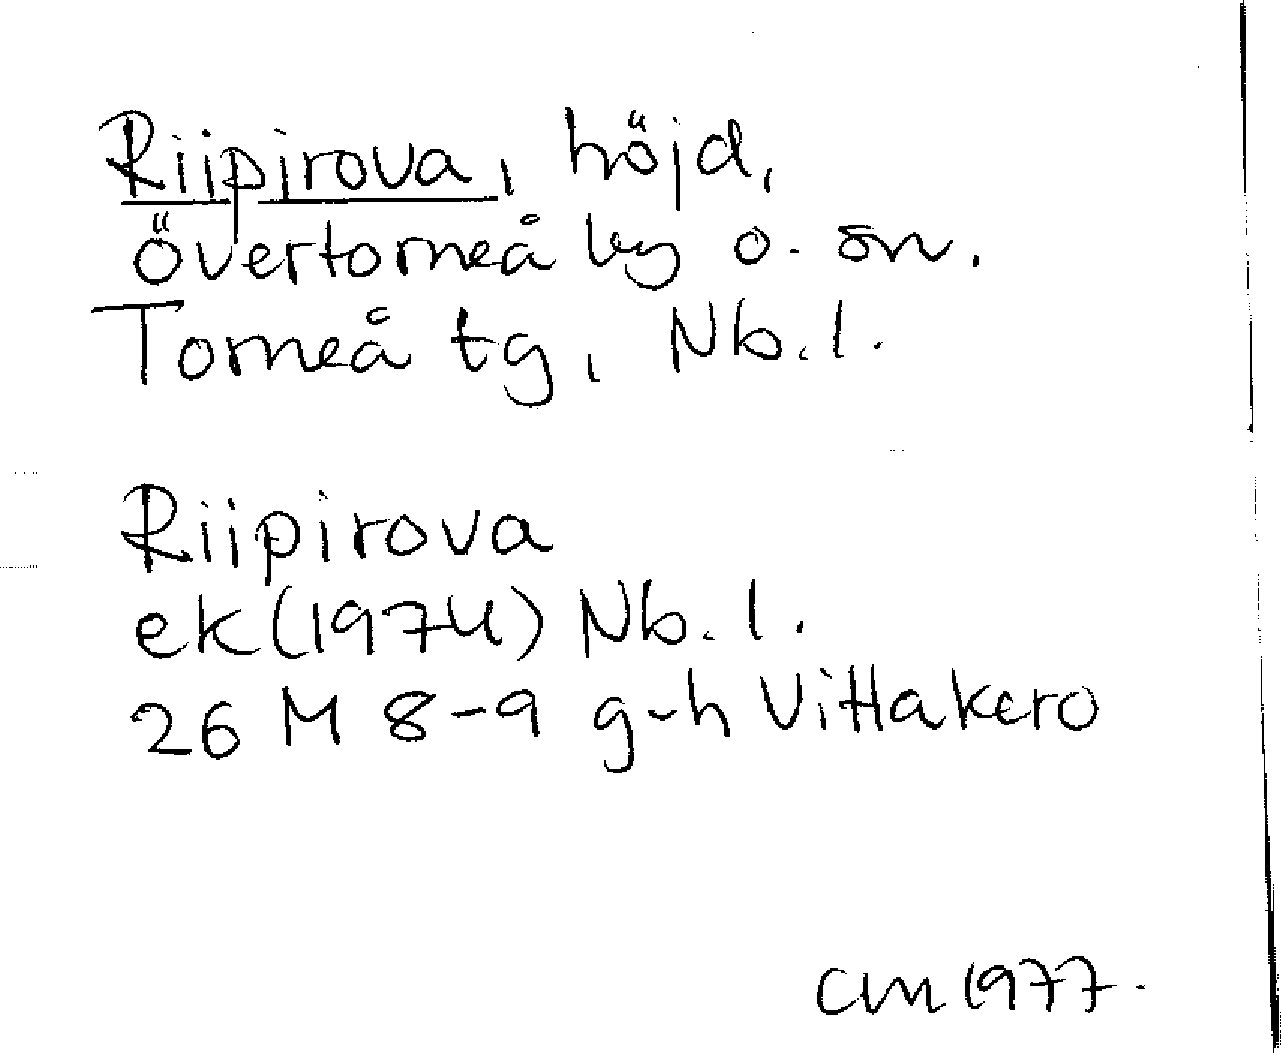 Riipirova, höjd,
Övertorneå by o. sn.
Torneå tg, Nb. l.
Riipirova
ek (1974) Nb. l.
26 M 8-9 g-h Vittakero
CM 1977.